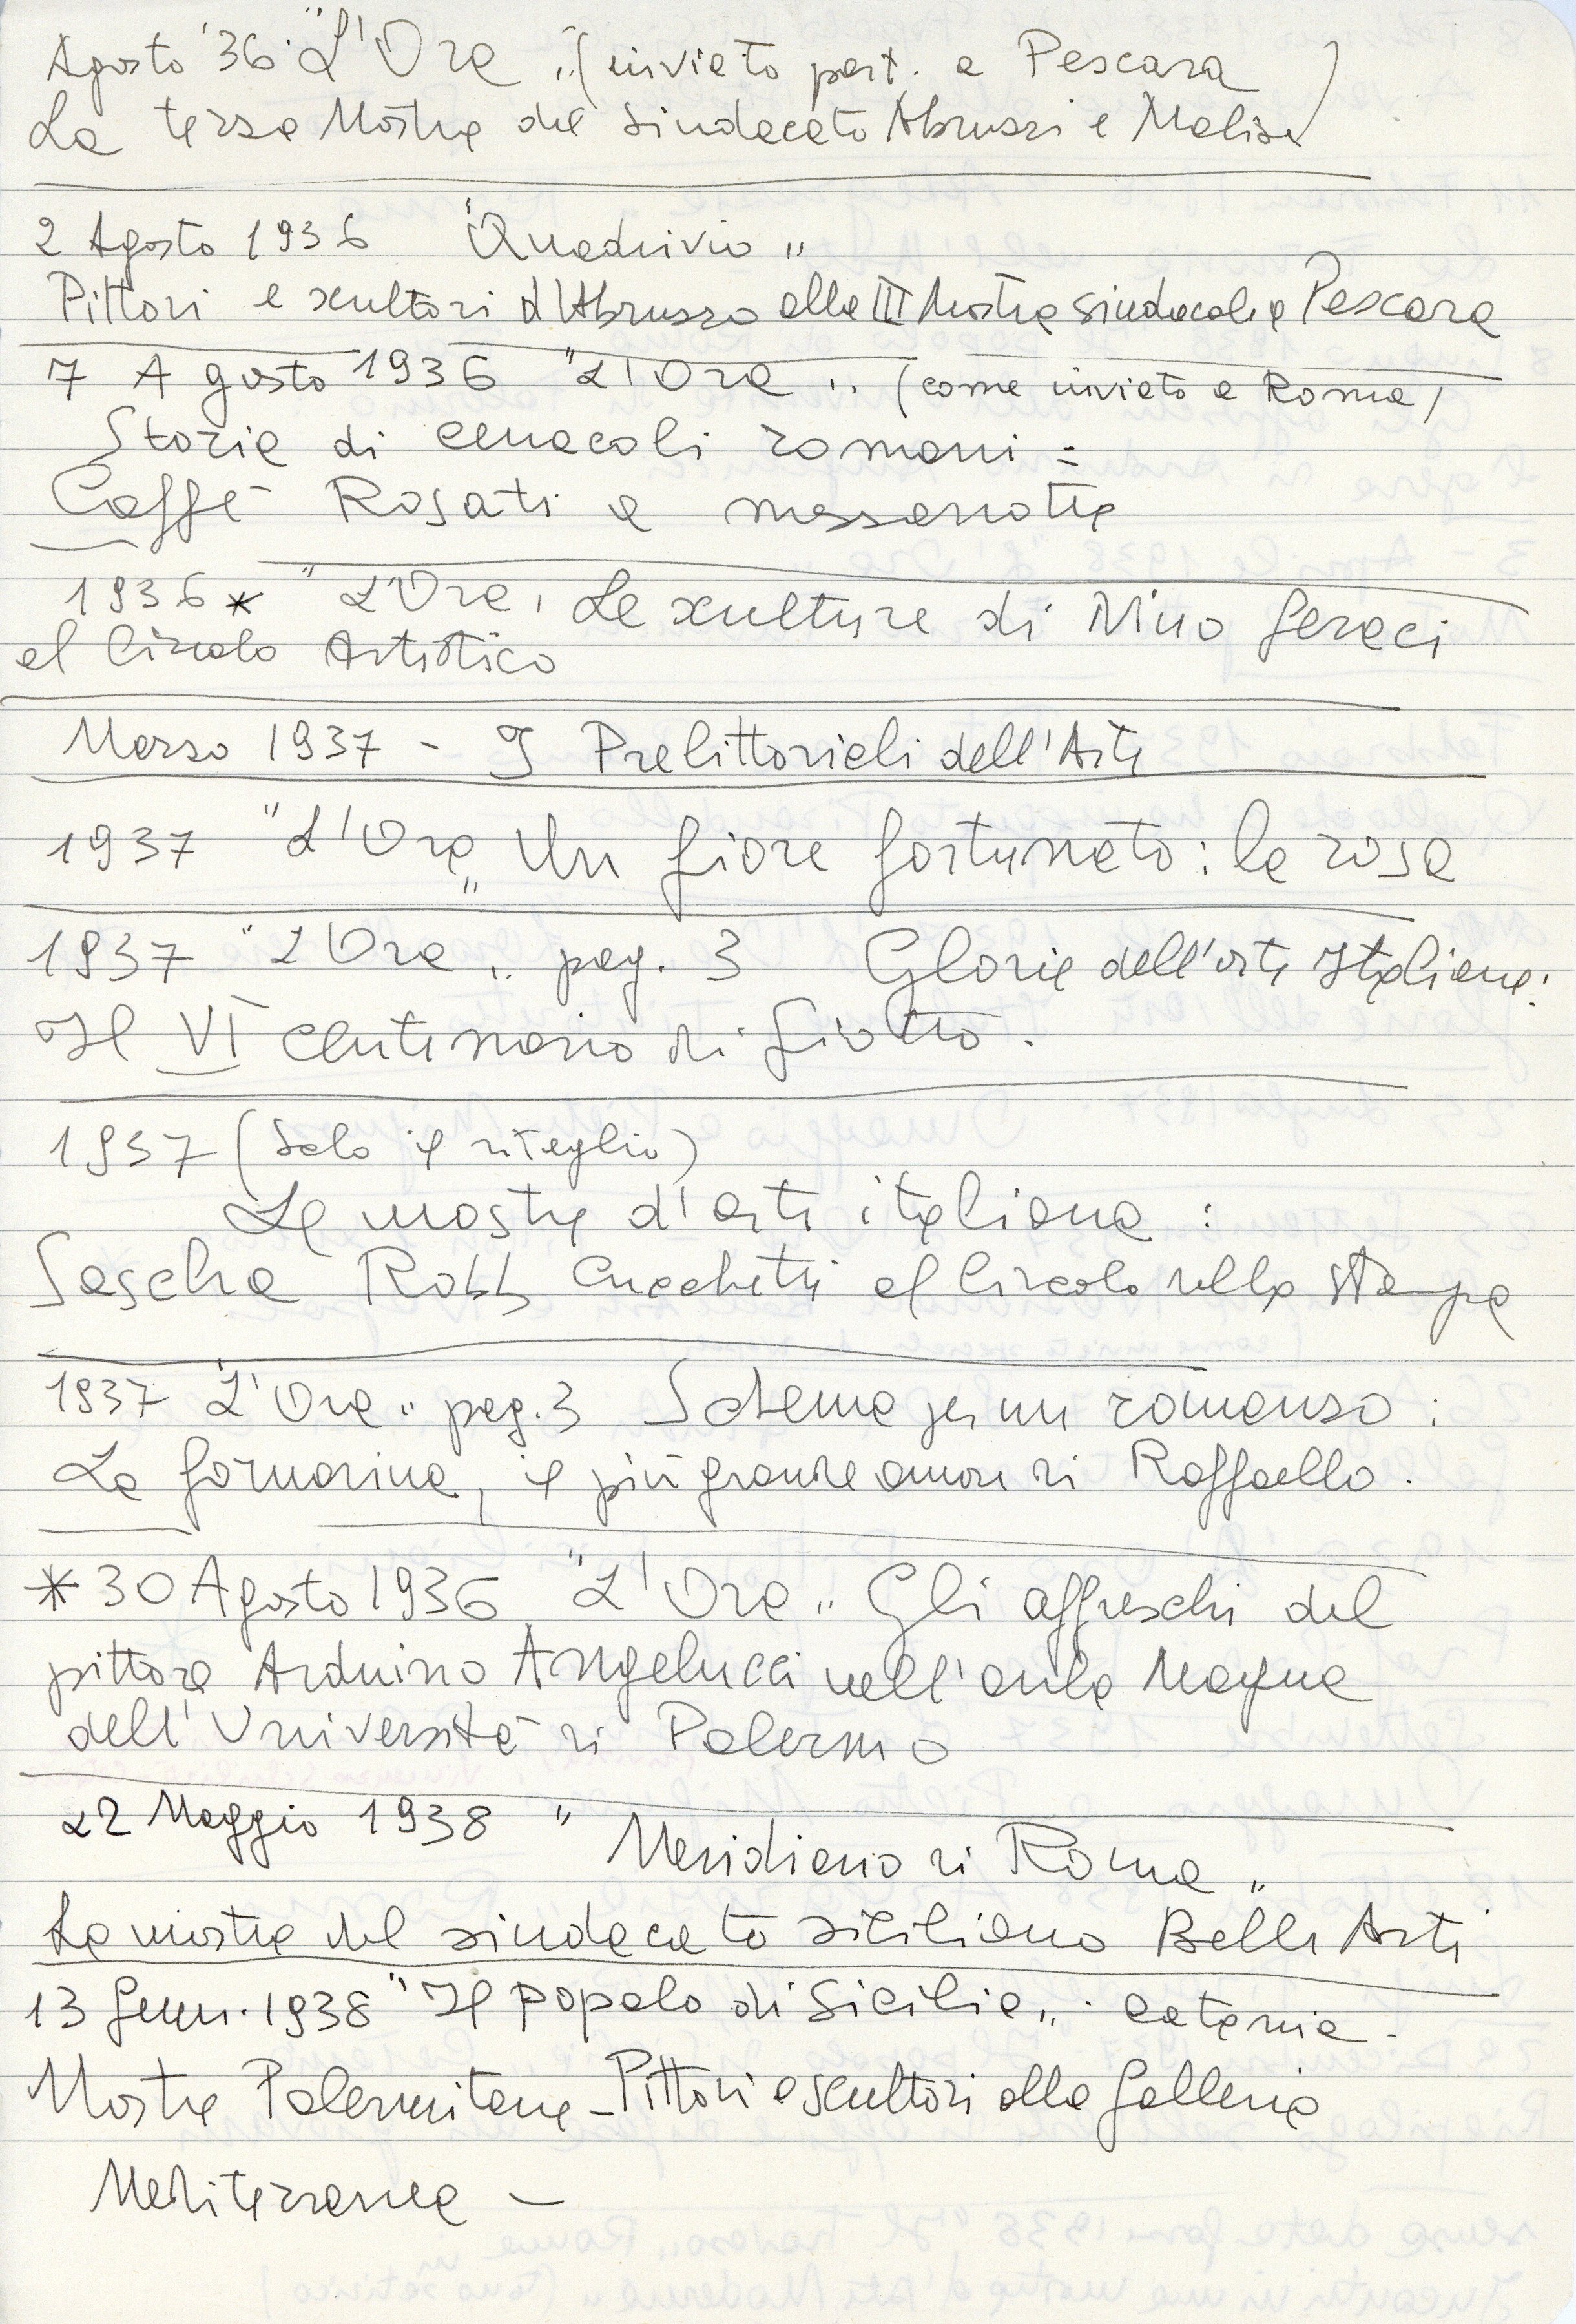 Agosto '36. "L'Ora" (inviato part. a Pescara
La terza Mostra del Sindacato Abruzzi e Molise)
2 Agosto 1936 "Quadrivio"
Pittori e scultori d'Abruzzo alla III Mostra Sindacale a Pescara
7 Agosto 1936 "L'Ora" (come inviato a Roma)
Storia di cenacoli romani =
Caffè Rosati a mezzanotte
1936 * "L'Ora, Le sculture di Nino Geraci
al Circolo Artistico
Marzo 1937 - I Prelittoriali dell'Arte
1937 "L'Ora" Un fiore fortunato: la rosa
1937 "L'Ora" pag. 3 Glorie dell'arte Italiana:
Il VI centenario di Giotto.
1937 (Solo il ritaglio)
Le mostre d'arte italiana:
Sascha Robb Cucchetti al Circolo della Stampa
1937 L'Ora" pag. 3 Schema per un romanzo:
La fornarina, il più grande amore di Raffaello.
* 30 Agosto 1936 "L'Ora" Gli affreschi del
pittore Arduino Angelucci nell'aula Magna
dell'Università di Palermo
22 Maggio 1938 "Meridiano di Roma"
La mostra del sindacato siciliano Belle Arti
13 Genn. 1938 "Il popolo di Sicilia". Catania -
Mostra Palermitana - Pittori e scultori alla Galleria
Mediterranea -